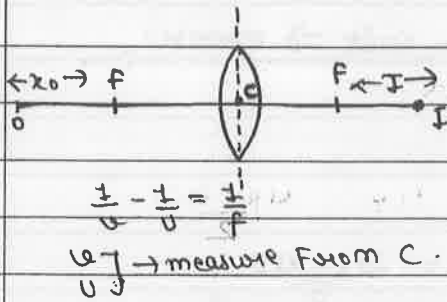 ←x₀→ F C F ←I→
O I
1/v - 1/u = 1/f
v u } → measure From C.